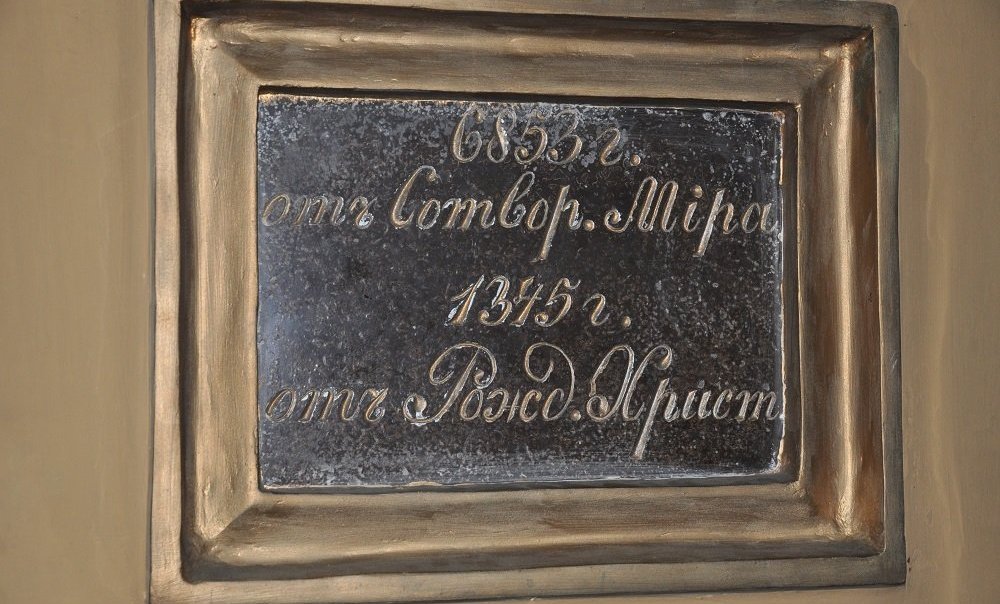 6853 г.
отъ Сотвор. Міра
1345 г.
отъ Рожд. Христ